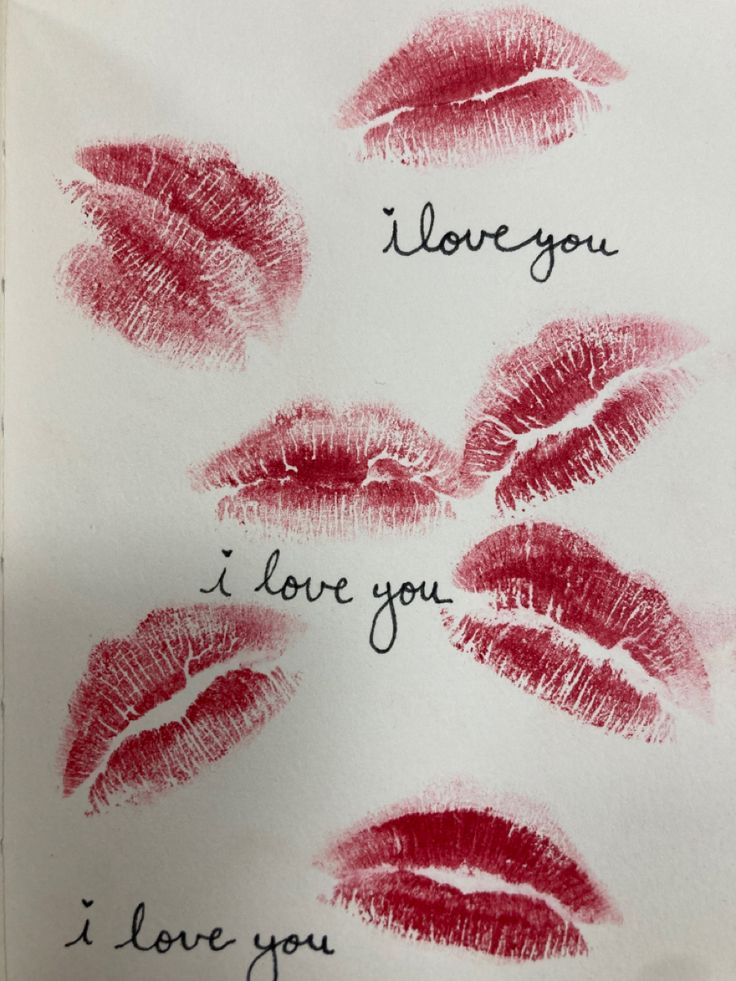 i love you
i love you
i love you